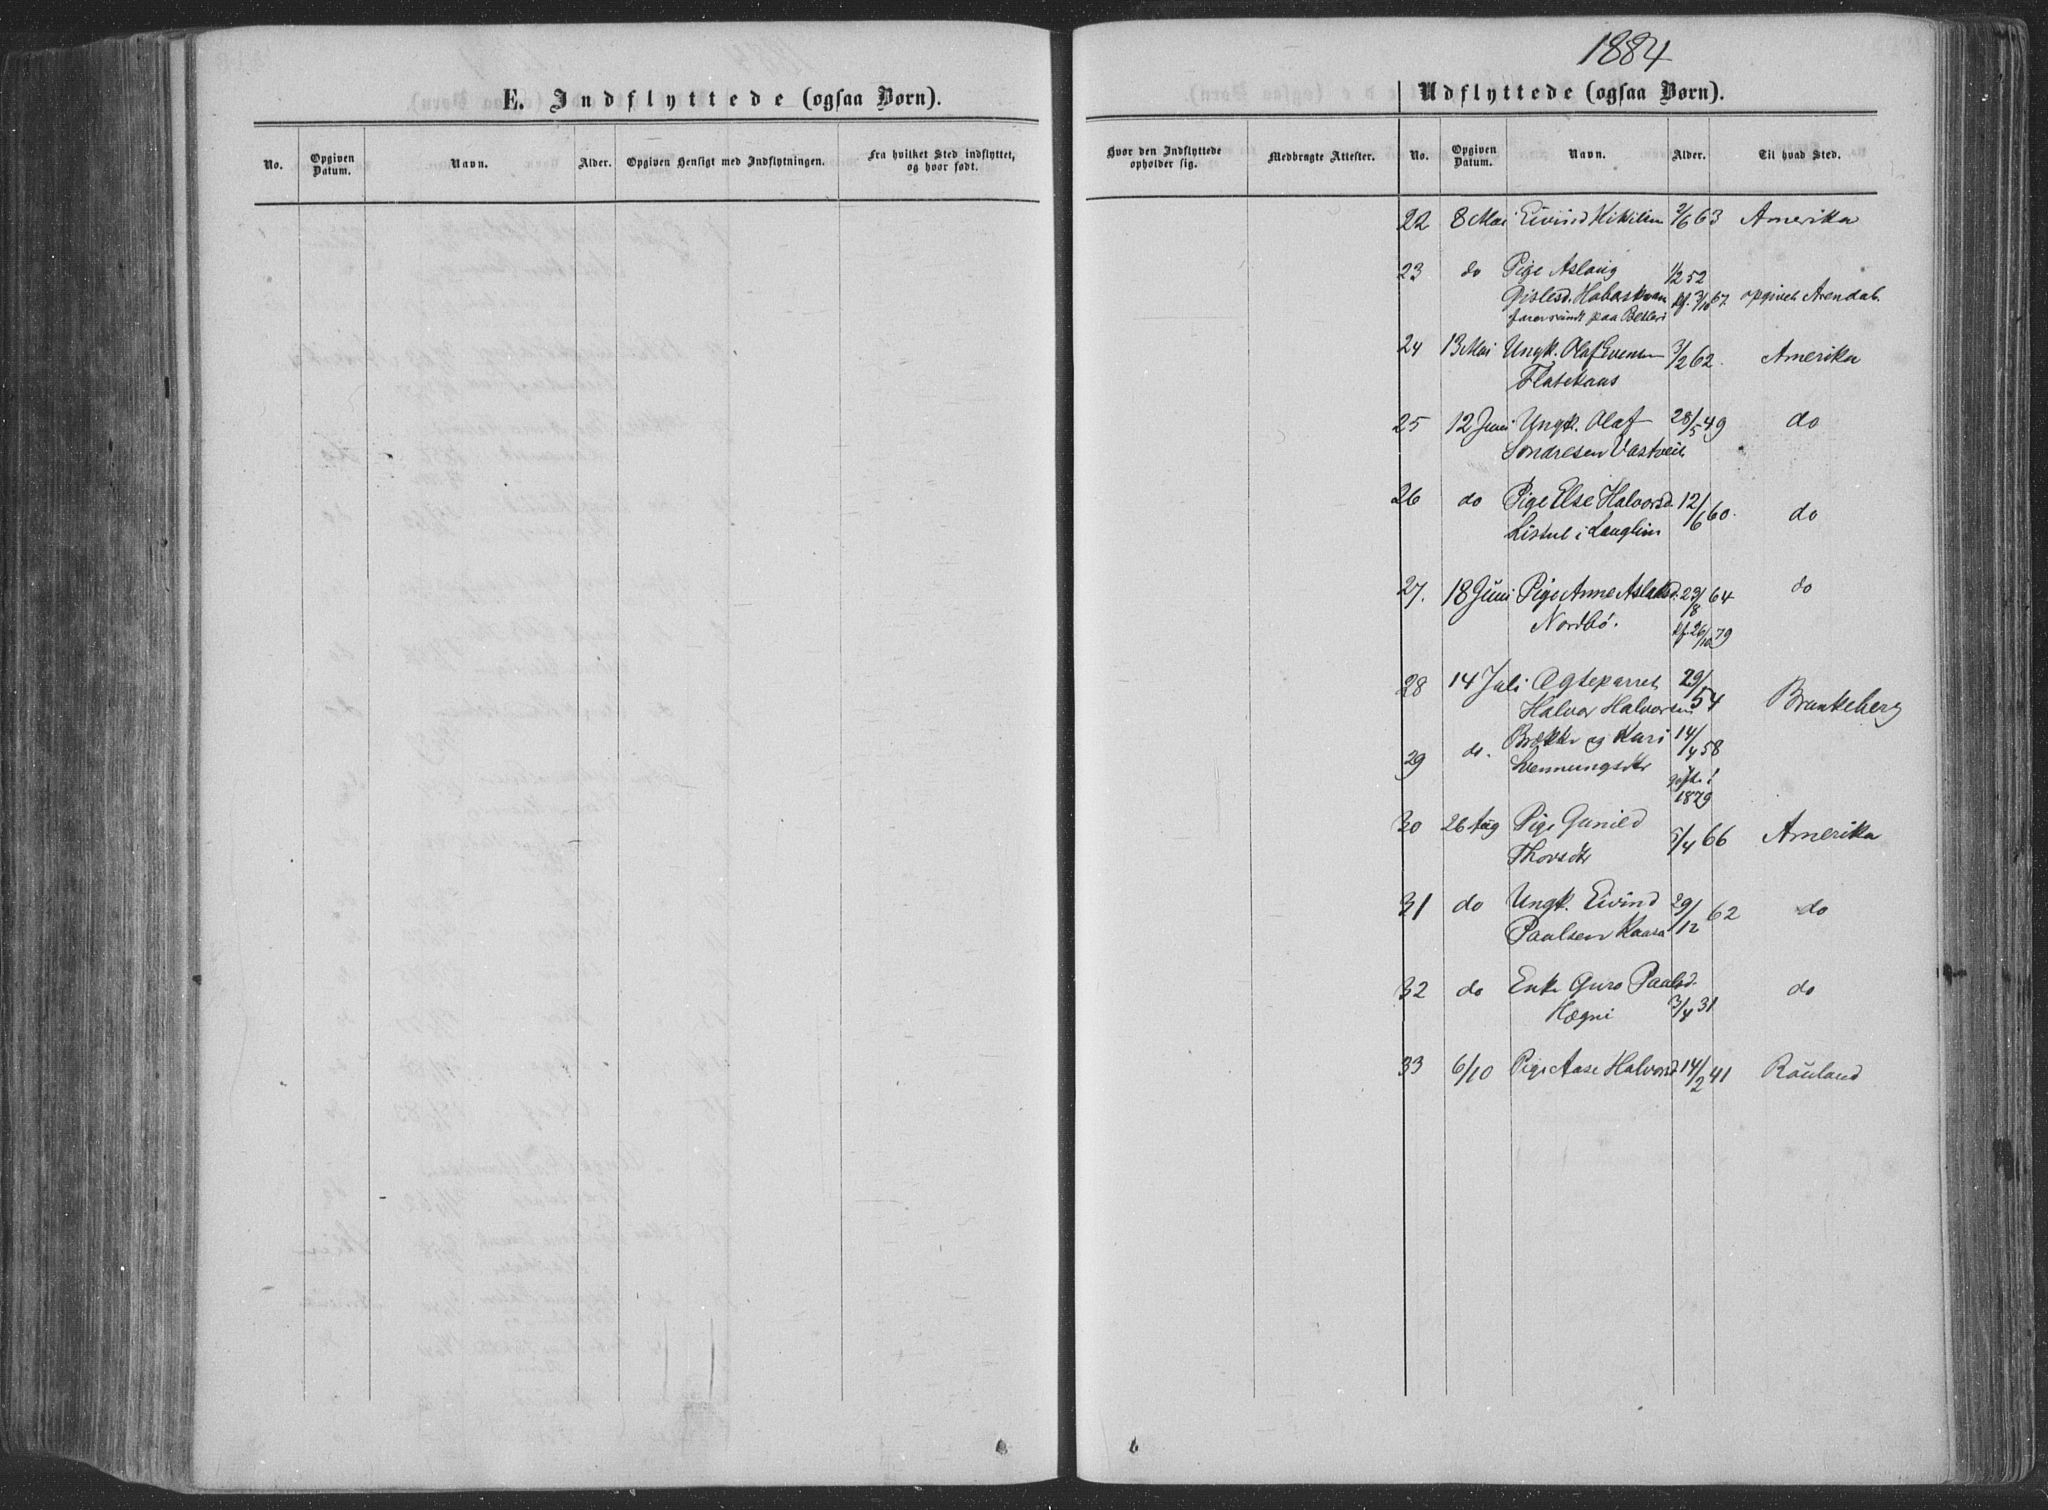 1884
E. Indflyttede (ogsaa Børn).
Udflyttede (ogsaa Børn).
No. Opgiven Datum. Navn. Alder. Opgiven Hensigt med Indflytningen. Fra hvilket Sted indflyttet, og hvor født.
Hvor den Indflyttede opholder sig. Medbragte Attester. No. Opgiven Datum. Navn. Alder. Til hvad Sted.
22 8 Mai Eivind 2/6 63 Amerika
23 do Pige Aslaug 1/2 52
Gislesd. kf. 3/10 67 opgivet Arendal.
paa
24 13 Mai Ungk. Olaf Evensen 3/2 62. Amerika
25 12 Juni Ungk. Olaf 28/5 49 do
Sondresen Vastveit
26 do Pige Else Halvorsd. 12/6 60. do
Listul i
27. 18 Juni Pige Anne Aslaksd. 23/8 64 do
Nordbö. kf. 26/10 79
28 14 Juli Ægteparret 29/
Halvor Halvorsen 54 Brunkeberg
Brække og Kari 14/4 58
29 do. Svennungsdtr
gift i
1879
30 26 Aug Pige Gunild
Thorsdtr 5/4 66 Amerika
31 do Ungk. Eivind 29/12 62 do
Paulsen Kaasa
32 do Enke Guro Paulsd. do
Hægni 3/4 31
33 6/10 Pige Aase Halvorsd 14/2 41 Rauland